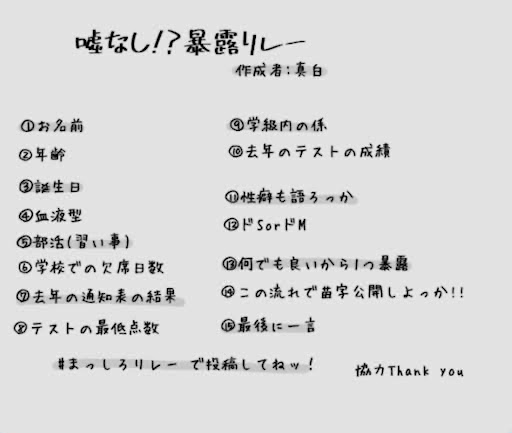 嘘なし!?暴露リレー
作成者:真白
①お名前
②年齢
③誕生日
④血液型
⑤部活(習い事)
⑥学校での欠席日数
⑦去年の通知表の結果
⑧テストの最低点数
⑨学級内の係
⑩去年のテストの成績
⑪性癖も語ろっか
⑫ドSorドM
⑬何でも良いから1つ暴露
⑭この流れで苗字公開しよっか!!
⑮最後に一言
#まっしろリレー で投稿してねッ!
協力Thank you